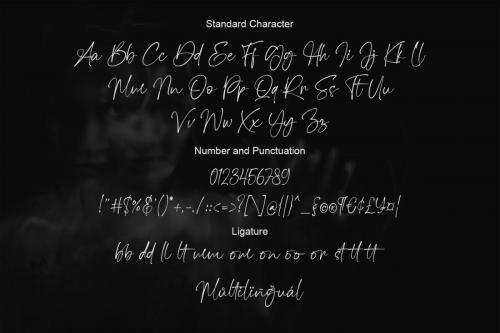 Standard Character
Aa Bb Cc Dd Ee Ff Gg Hh Ii Jj Kk Ll
Mm Nn Oo Pp Qq Rr Ss Tt Uu
Vv Ww Xx Yy Zz
Number and Punctuation
0123456789
!"#$%&'()*+,-./:;<=>?[\]@{|}^_§©®¶€¢£¥¤¦
Ligature
bb dd ll tt
Multilingual